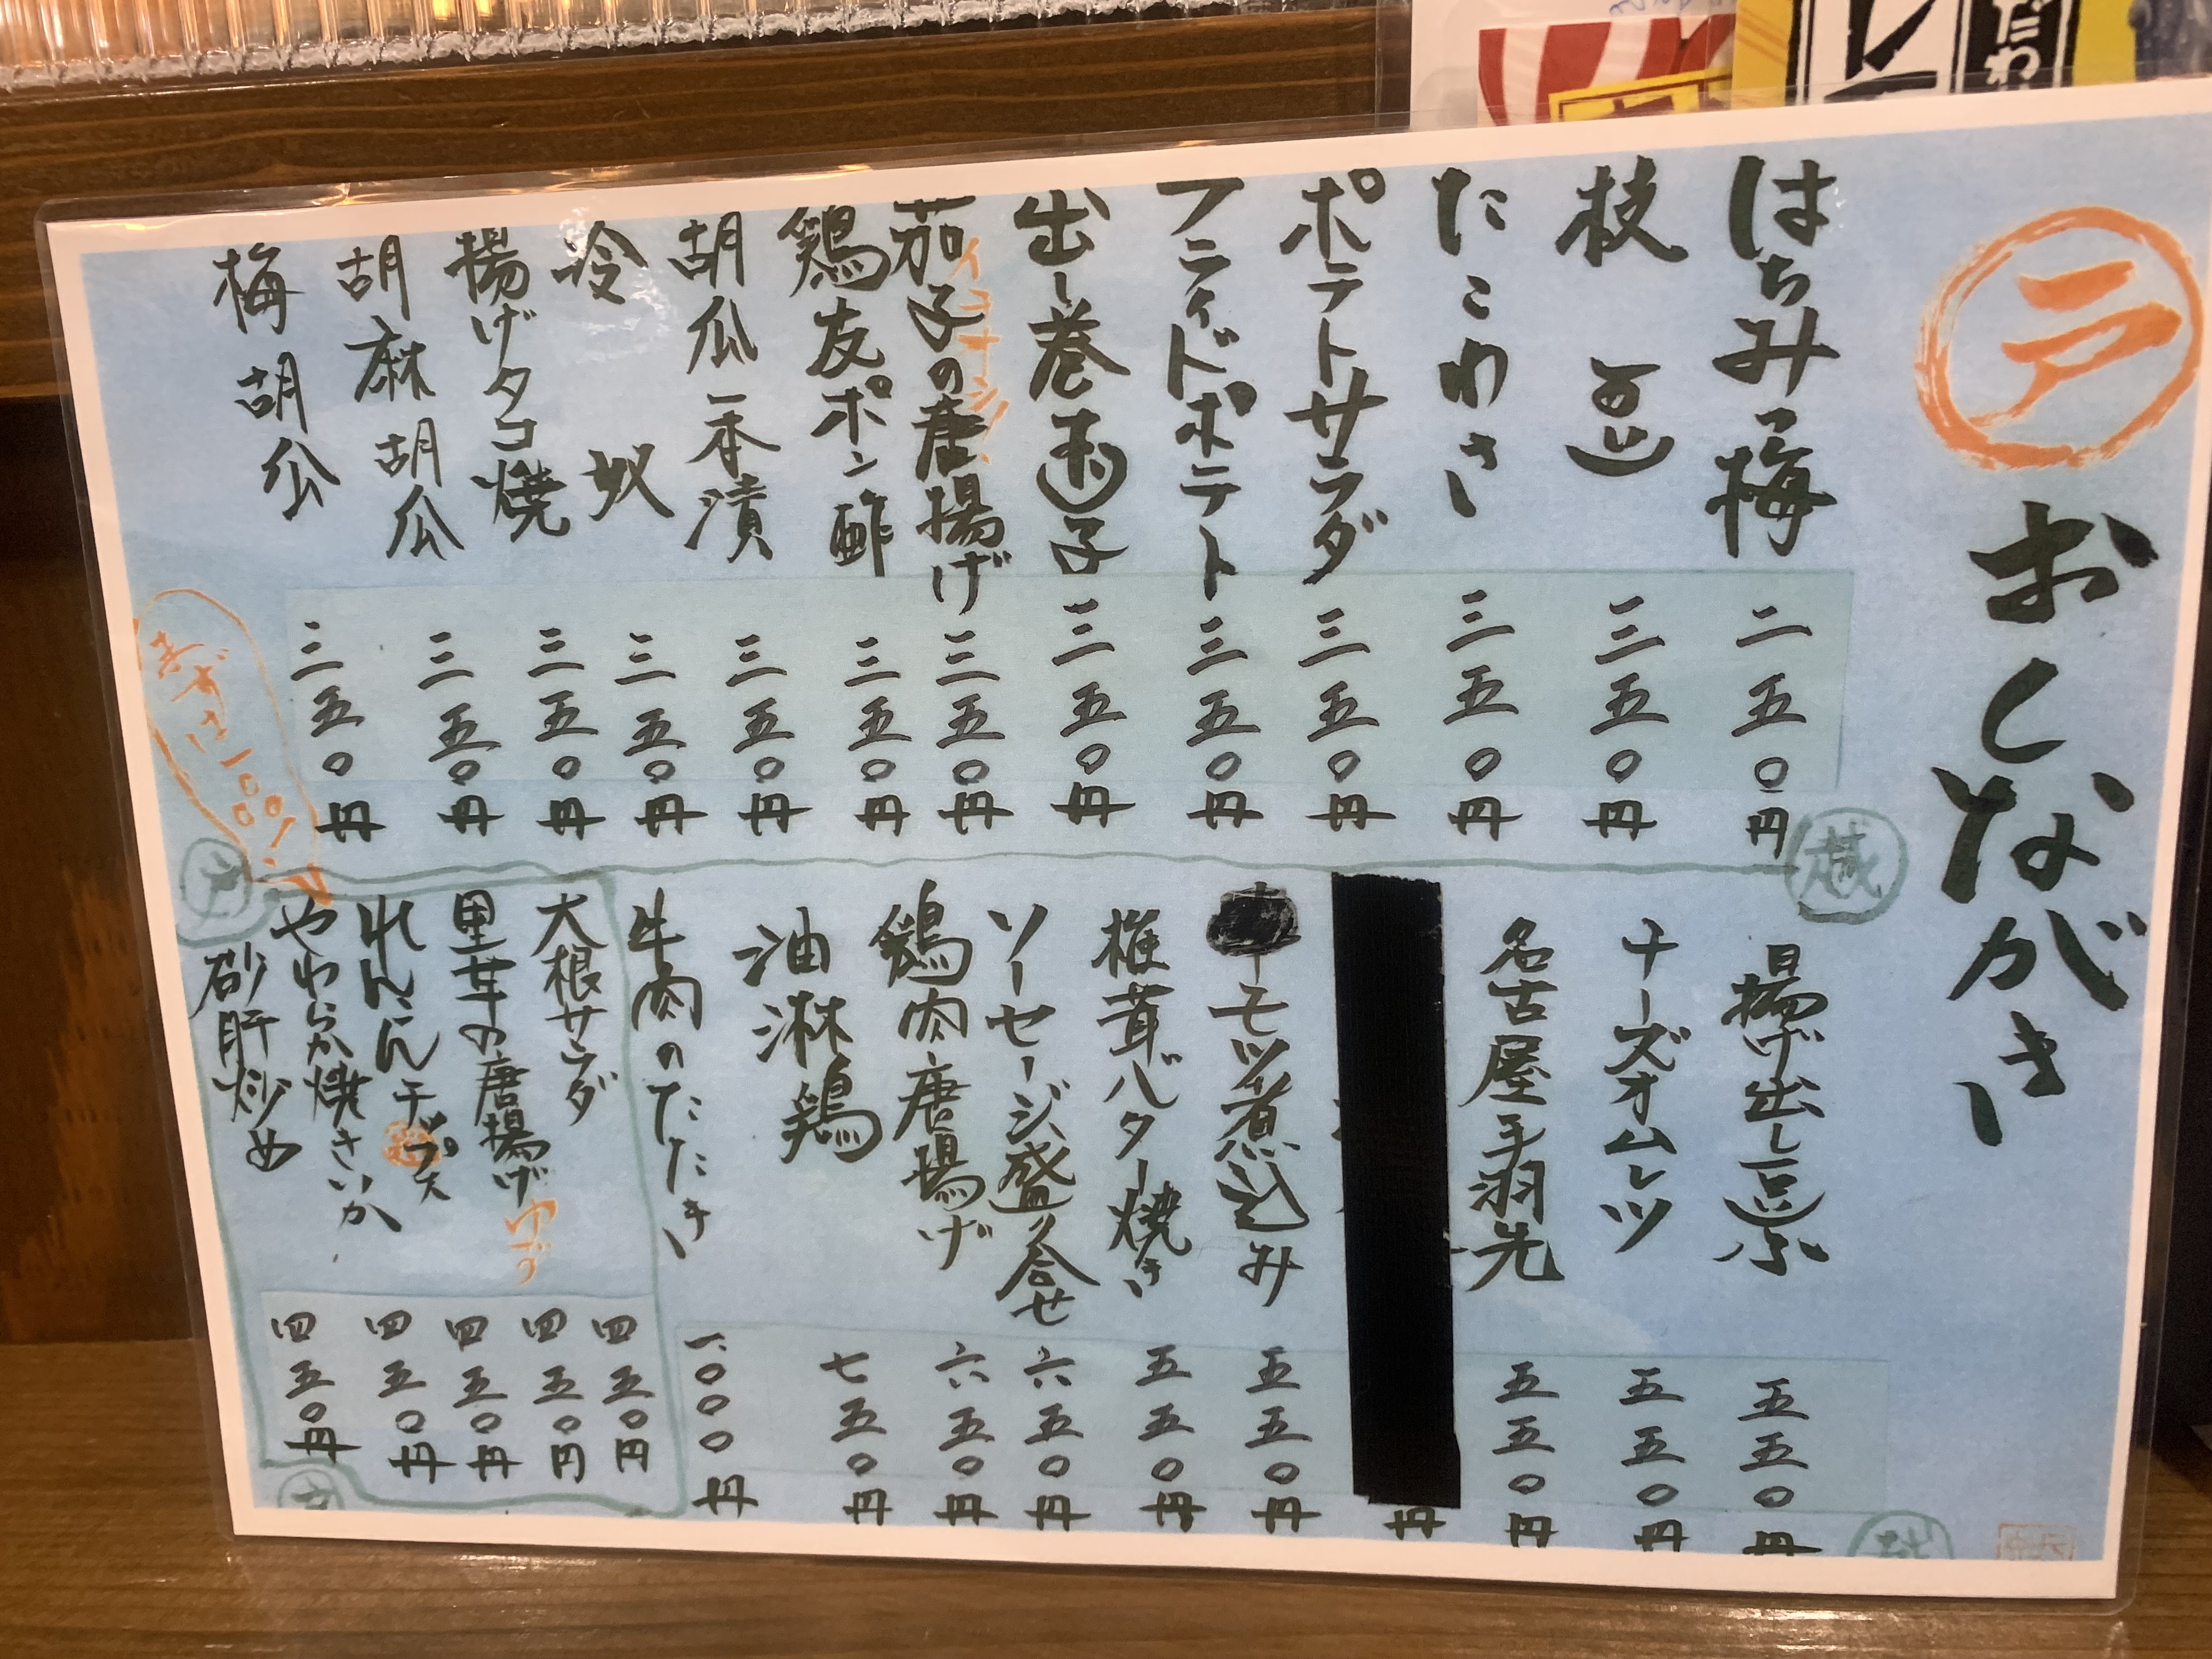 戸
おしながき
はちみつ梅 二五〇円
枝豆 三五〇円
たこわさ 三五〇円
ポテトサラダ 三五〇円
フライドポテト 三五〇円
出し巻き玉子 三五〇円
茄子の唐揚げ 三五〇円
イチオシ!
鶏皮ポン酢 三五〇円
胡瓜一本漬 三五〇円
冷奴 三五〇円
揚げタコ焼 三五〇円
胡麻胡瓜 三五〇円
梅胡瓜 三五〇円
まずは
揚げ出し豆ふ 五五〇円
チーズオムレツ 五五〇円
名古屋手羽先 五五〇円
円
モツ煮込み 五五〇円
椎茸バター焼き 五五〇円
ソーセージ盛り合せ 六五〇円
鶏肉唐揚げ 六五〇円
油淋鶏 七五〇円
牛肉のたたき 一、〇〇〇円
大根サラダ 四五〇円
里芋の唐揚げ 四五〇円
ゆず
れんこんチップス 四五〇円
やわらか焼きいか 四五〇円
砂肝炒め 四五〇円